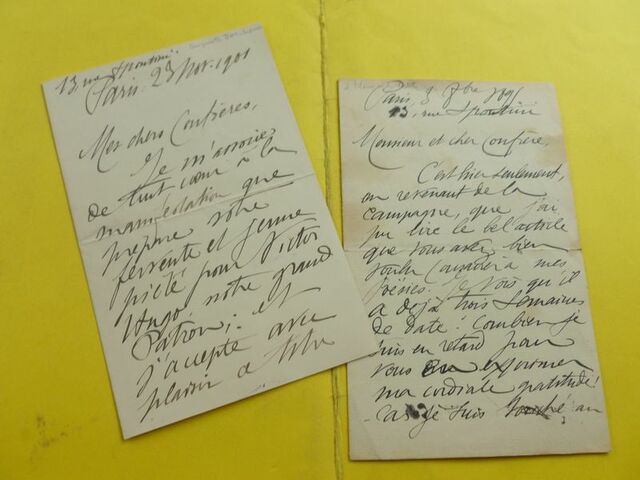 13 rue Spontini.
Paris. 23 Nov. 1901
Mes chers Confrères,
Je m'associe,
de tout cœur à la
manifestation que
prépare votre
fervente et jeune
piété pour Victor
Hugo, notre grand
Patron; et
j'accepte avec
plaisir le titre
Paris, 8bre
13, rue Spontini
Monsieur et cher Confrère,
C'est hier seulement,
en revenant de la
campagne, que j'ai
pu lire le bel article
que vous avez bien
voulu consacrer à mes
poésies. Je vois qu'il
a déjà trois semaines
de date! Combien je
suis en retard pour
vous exprimer
ma cordiale gratitude!
Car je suis touché au